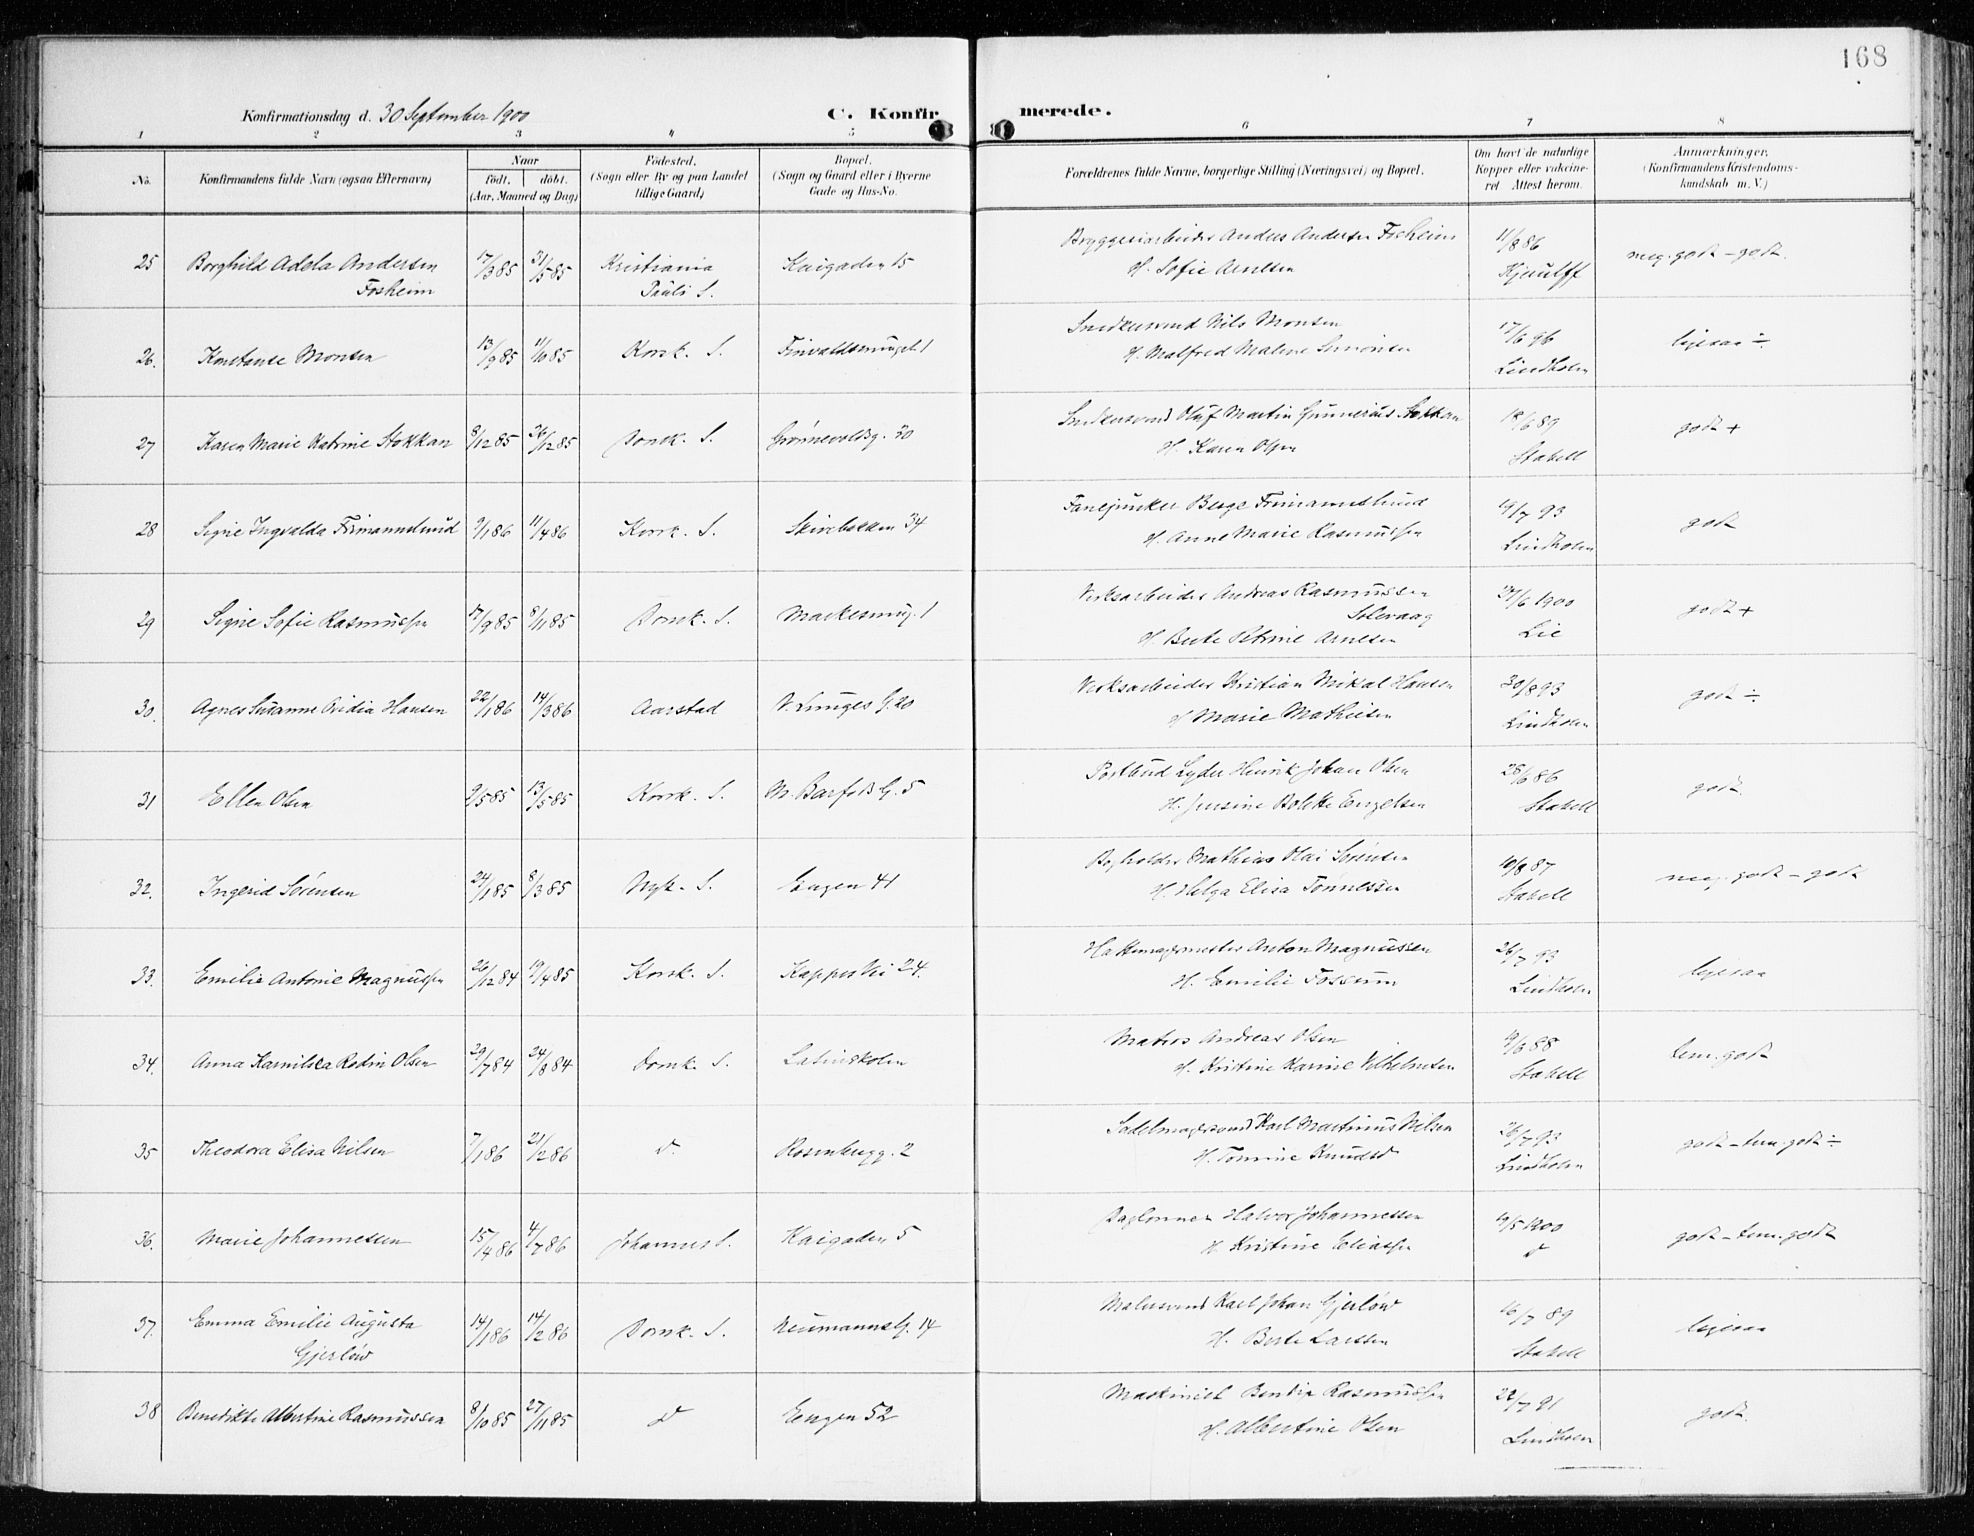 168
Konfirmationsdag d. 30 September 1900
C. Konfirmerede.
1 2 3 4 5 6 7 8
No. Konfirmandens fulde Navn (ogsaa Efternavn) Naar født, døbt. (Aar, Maaned og Dag) Fødested. (Sogn eller By og paa Landet tillige Gaard) Bopæl. (Sogn og Gaard eller i Byerne Gade og Hus-No. Forældrenes fulde Navne, borgerlige Stilling (Næringsvei) og Bopæl. Om havt de naturlige Kopper eller vakcineret Attest herom. Anmærkninger. (Konfirmandens Kristendomskundskab m. V.)
25 Borghild Adela Andersen 17/3 85 31/5 85 Kristiania Kaigaden 15 Bryggeriarbeider Anders Andersen Fosheim 11/8 86 meg. godt - godt.
Fosheim Pauls S. H. Sofie Arnesen Kjeulff
26. Konstanse Monsen 13/9 85 11/10 85 Korsk. S. Finvaldsmuget 1 Snedkersvend Nils Monsen 17/6 96 ligesaa ÷
H. Malfred Malene Simonsen Lindholm
27 Karen Marie Katrine Stokkan 8/12 85 26/12 85 Domk. S. Grønnevoldsg. 30 Snedkersvend Oluf Martin Gunnerius Stokkan 18/6 89 godt +
H. Karen Olsen Stabell
28 Signe Ingvalda Frimannslund 9/1 86 11/4 86 Korsk. S. Skivebakken 34 Fanejunker Berge Frimannslund 19/7 93 godt
H. Anne Marie Rasmussen Lindholm
29 Signe Sofie Rasmussen 17/9 85 8/11 85 Domk. S. Markesmug. 1 Verksarbeider Andreas Rasmussen 27/6 1900 godt +
Solevaag Lie
H. Berte Petrine Arnesen
30. Agnes Susanne Ovidia Hansen 22/1 86 14/3 86 Aarstad N. Lunges G. 20 Verksarbeider Kristian Mikal Hansen 30/8 93 godt ÷
H. Marie Mathiesen Lindholm
31 Ellen Olsen 9/5 85 13/5 85 Korsk. S. M. Barfods G. 5 Postbud Lyder Henrik Johan Olsen 28/6 86 godt.
H. Jensine Bolette Engelsen Stabell
32. Ingerid Sørensen 24/1 85 8/3 85 Nyk. S. Engen 41 Bogholder Mathias Olai Sørensen 19/8 87 meg. godt - godt
H. Helga Elisa Tønnessen Stabell
33. Emilie Antonie Magnussen 26/12 84 19/4 85 Korsk. S. Kappes Vei 24. Hattemagermester Anton Magnussen 26/7 93 ligesaa
H. Emilie Fossum Lindholm
34. Anna Kamilla Redin Olsen 29/7 84 24/8 84 Domk. S. Latinskolen Matros Andreas Olsen 9/3 88 tem. godt
H. Kristine Karine Vilhelmsen Stabell
35 Theodora Elisa Nilsen 7/1 86 21/2 86 d Rosenbergg. 2 Sadelmagersvend Karl Martinius Nilsen 26/7 93 godt - tem. godt ÷
H. Tomine Knudsd Lindholm
36. Marie Johannessen 15/4 86 4/7 86 Johannes S. Kaigaden 5 Daglønner Halvor Johannessen 19/5 1900 godt - tem. godt
H. Kristine Eliassen d
37. Emma Emilie Augusta 14/1 86 14/2 86 Domk. S. Neumannsg. 14 Malersvend Karl Johan Gjerløw 16/7 89 ligesaa
Gjerløw H. Berte Larssen Stabell
38 Benedikte Albertine Rasmussen 8/10 85 27/11 85 d Engen 52 Maskinist Bendix Rasmussen 22/7 91 godt.
H. Albertine Olsen Lindholm